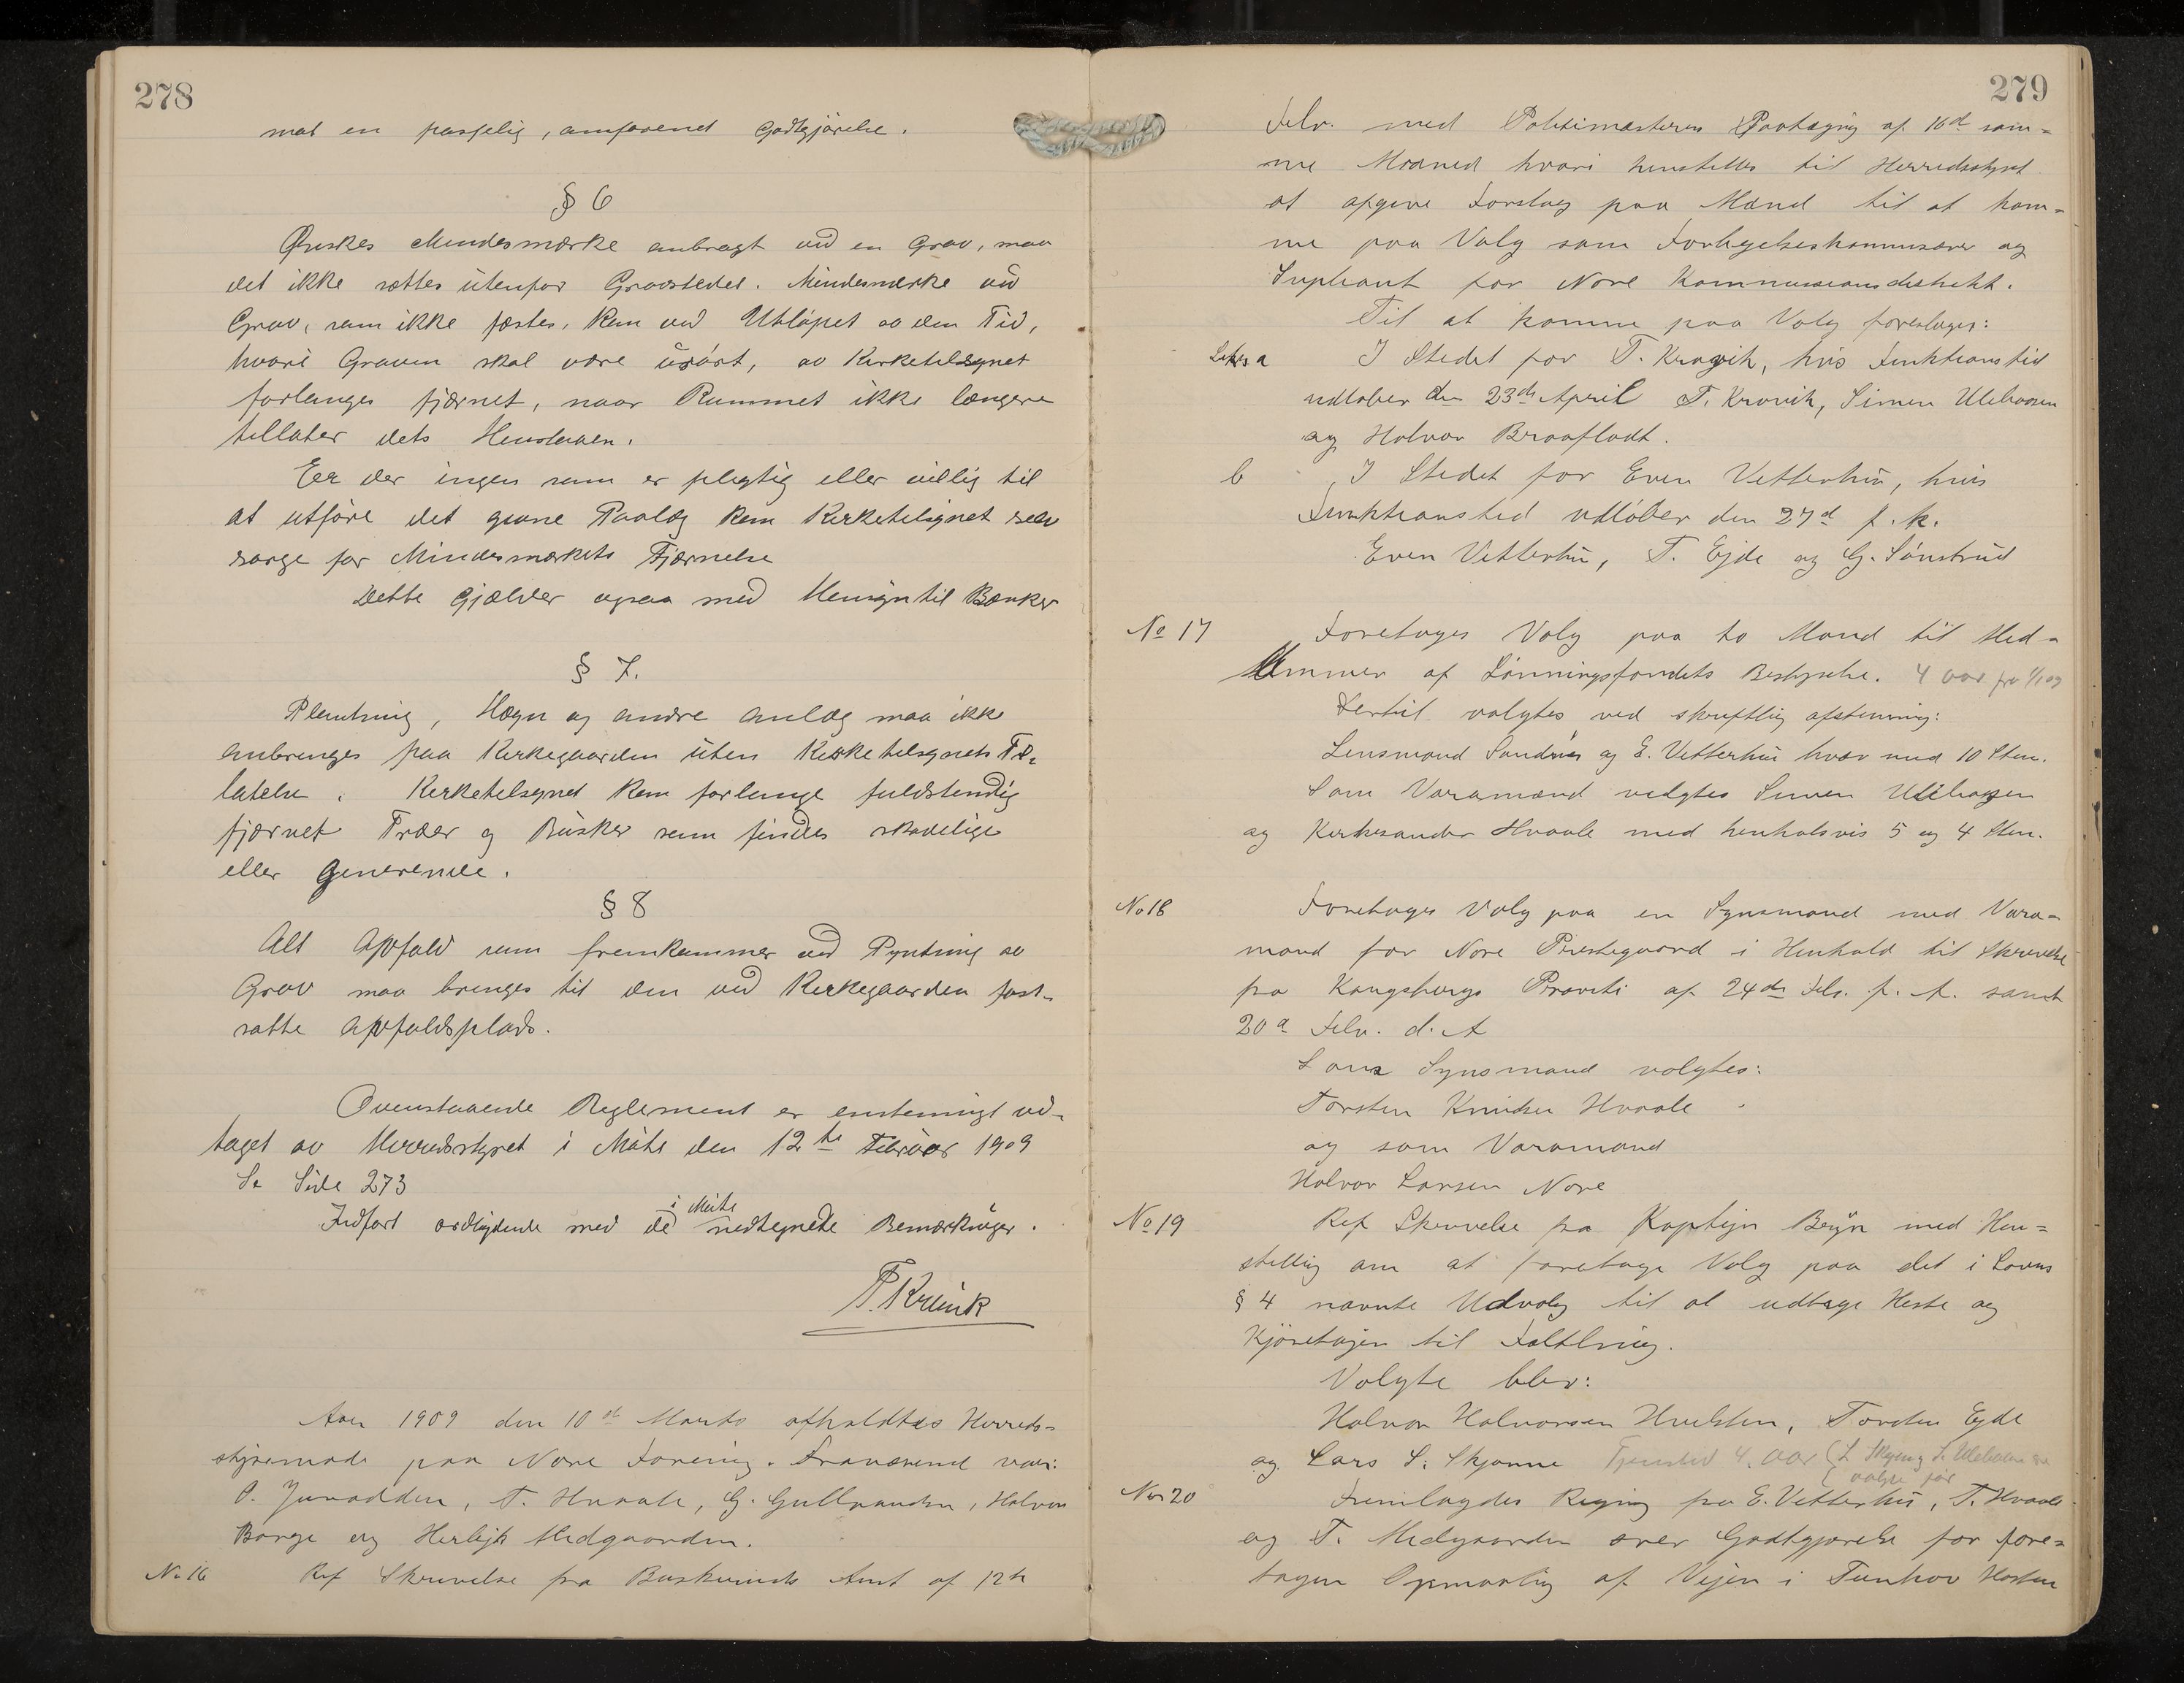 278
mot en passelig, anførend Godtgjörelse.
§ 6
Ønskes Mindesmærke anbragt ved en Grav, maa
det ikke sættes utenfor Gravstedet. Mindesmerke ved
Grav, som ikke fæstes, kan ved Utløpet av den Tid,
hvori Graven skal være urört, av Kirketilsynet
forlanges fjærnet, naar Rummet ikke længere
tillater dets Henstaaen.
Er der ingen som er pligtig eller villig til
at utföre det givne Paalæg kan Kirketilsynet selv
sørge for Mindesmærkets Fjærnelse
Dette gjælder ogsaa med Hensyn til Bænker
§ 7.
Plantning, Hegn og andre anlæg maa ikke
anbringes paa Kirkegaarden uten Kirketilsynets Til-
latelse. Kirketilsynet kan forlange fuldstendig
fjærnet Trær og Busker som findes skadelige
eller generende.
§ 8
Alt Affald som fremkommer ved Pyntning av
Grav maa bringes til den ved Kirkegaarden fast-
satte Affaldsplads.
Ovenstaaende Reglement er enstemmigt ved-
taget av Herredsstyret i Möte den 12te Februar 1909
Se Side 273
i Möte
Indført ordlydende med de nedtegnede Bemærkninger.
T. Kravik
Aar 1909 den 10de Marts afholdtes Herreds-
styremøde paa Nore Forening. Fraværend var:
O. Juvodden, T. Hvaale, G. Gulbrandsen, Halvor
Borge og Herleik Medgaarden.
No 16 Ref Skrivelse fra Buskeruds Amt af 12te
279
Febr. med Politimesterens Paategning af 16de sam=
me Maaned hvori henstilles til Herredsstyret
at afgive Forslag paa Mænd til at kom=
me paa Valg som Forligelseskommisærer og
Supleant for Nore Kommissionsdistrikt.
Til at komme paa Valg foreslages:
Litra a I Stedet for T. Kravik, hvis Funktionstid
udløber den 23de April T. Kravik, Simen Ulehaagen
og Halvor Braaflodt.
b I Stedet for Even Vetterhus, hvis
Funktionstid udløber den 27d f. k.
Even Vetterhus, T. Ejde og G. Sønstrud
No 17 Foretages Valg paa to Mænd til Med-
lemmer af Lønningsfondets Bestyrelse. 4 aar fra 1/1 09
Dertil valgtes ved skriftlig afstemning:
Lensmand Sandnes og E. Vetterhus hver med 10 Stem.
Som Varamænd valgtes Simen Ulehagen
og Kirkesanger Hvaale med henholdsvis 5 og 4 Stem.
No 18 Foretages Valg paa en Synsmand med Vara-
mand for Nore Præstegaard i Henhold til Skrivelse
fra Kongsbergs Provsti af 24de Febr. f. A. samt
20d Febr. d. A
Som Synsmand valgtes:
Torsten Knudsen Hvaale
og som Varamand
Halvor Larsen Nore
No 19 Ref Skrivelse fra Kaptejn Bryn med Hen=
stilling om at foretage Valg paa det i Lovens
§ 4 nævnte Udvalg til at udtage Heste og
Kjøretøjer til Feltbrug.
Valgte blev:
Halvor Halvorsen Hvelsten, Torsten Ejde
og Lars S. Skjønne Tjenstid 4. aar
valgte før
No 20 Fremlagdes Regning fra E. Vetterhus, T. Hvaale
og T. Medgaarden over Godtgjørelse for fore=
tagen Opmaaling af Vejen i Tunhov Høsten